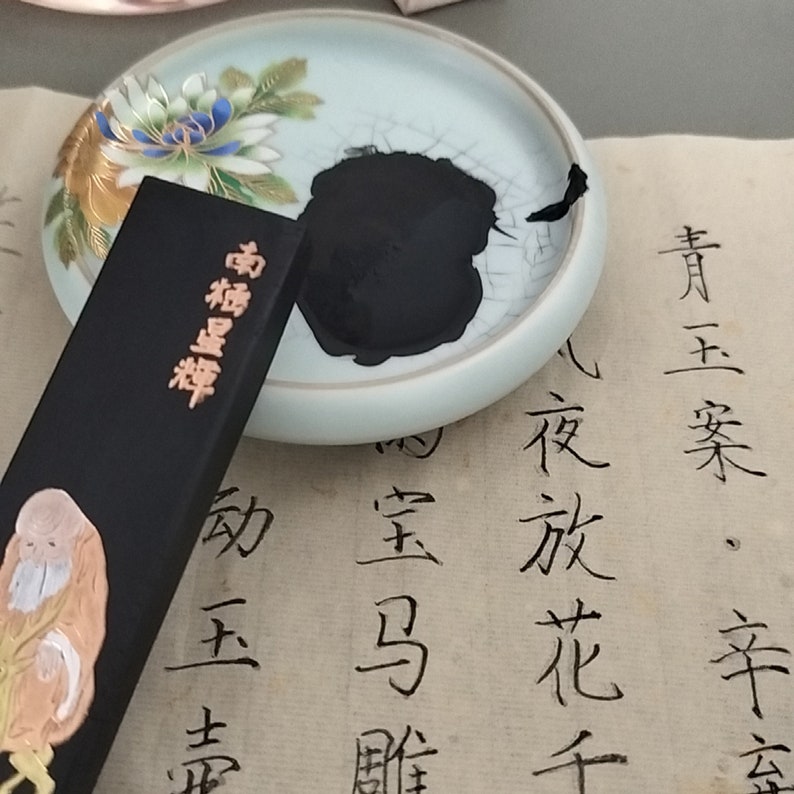 南極星輝
青玉案·辛弃
风夜放花千
雨宝马雕
动玉壶